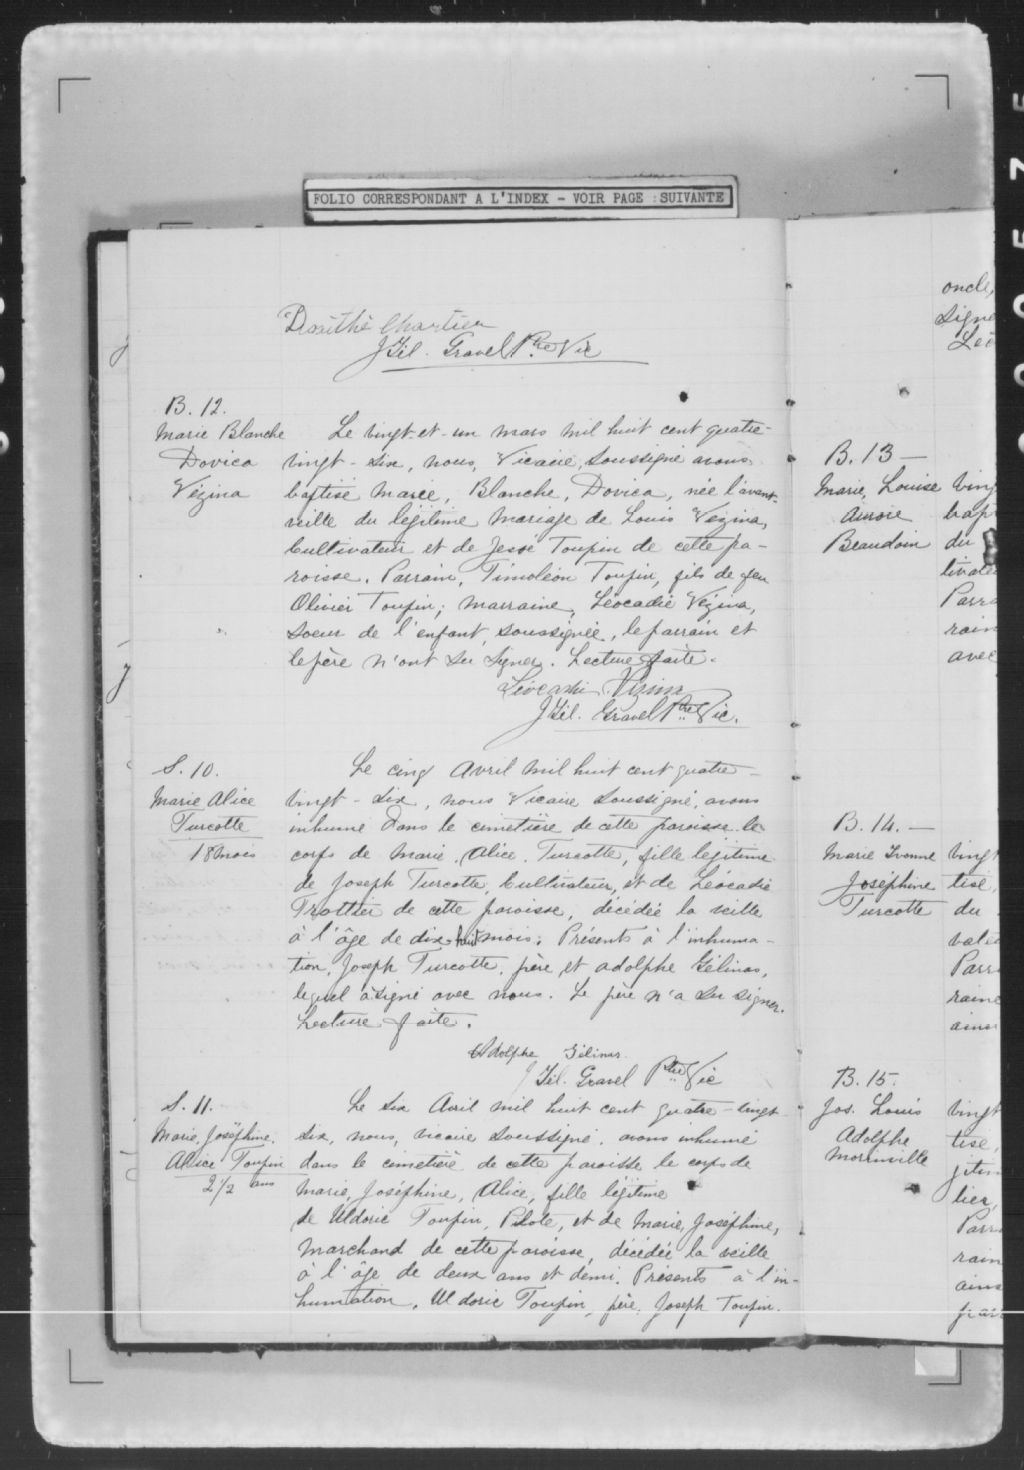 FOLIO CORRESPONDANT A L'INDEX - VOIR PAGE SUIVANTE
Chartier
J Gél. Gravel Ptre Vic
B. 12.
Marie Blanche
Dorica
Vézina
Le vingt-et-un mars mil huit cent quatre-
vingt-six, nous, Vicaire, soussigné avons
baptisé Marie, Blanche, Dorica, née l'avant-
veille du légitime mariage de Louis Vézina,
Cultivateur et de Jessé Toupin de cette pa-
roisse. Parrain, Timoléon Toupin, fils de feu
Olivier Toupin; marraine, Léocadie Vézina,
soeur de l'enfant, soussignée, le parrain et
le père n'ont su signer. Lecture faite.
Léocadie Vézina
J Gél. Gravel Ptre Vic.
S. 10.
Marie Alice
Turcotte
18 mois
Le cinq Avril mil huit cent quatre-
vingt-six, nous Vicaire soussigné, avons
inhumé dans le cimetière de cette paroisse le
corps de Marie, Alice, Turcotte, fille légitime
de Joseph Turcotte, Cultivateur, et de Léocadie
Trottier de cette paroisse, décédée la veille
à l'âge de dix huit mois. Présents à l'inhuma-
tion, Joseph Turcotte, père, et Adolphe Gélinas,
lequel a signé avec nous. Le père n'a su signer.
Lecture faite.
Adolphe Gélinas
J Gél. Gravel Ptre Vic
S. 11.
Marie, Joséphine,
Alice Toupin
2 1/2 ans
Le six Avril mil huit cent quatre-vingt
six, nous, vicaire soussigné, avons inhumé
dans le cimetière de cette paroisse le corps de
Marie, Joséphine, Alice, fille légitime
de Uldoric Toupin, Pilote, et de Marie, Joséphine,
Marchand de cette paroisse, décédée la veille
à l'âge de deux ans et demi. Présents à l'in-
humation, Uldoric Toupin, père, Joseph Toupin.
oncle,
signe
Léo
B. 13 —
Marie, Louise
Aurore
Beaudoin
ving
bap
du
tivate
Parra
rain
avec
B. 14. —
Marie Yvonne
Joséphine
Turcotte
vingt
tisé,
du
vate
Parr
raine
ains
B. 15.
Jos. Louis
Adolphe
Morinville
vingt
tisé,
gitim
lier,
Parr
rain
ains
par